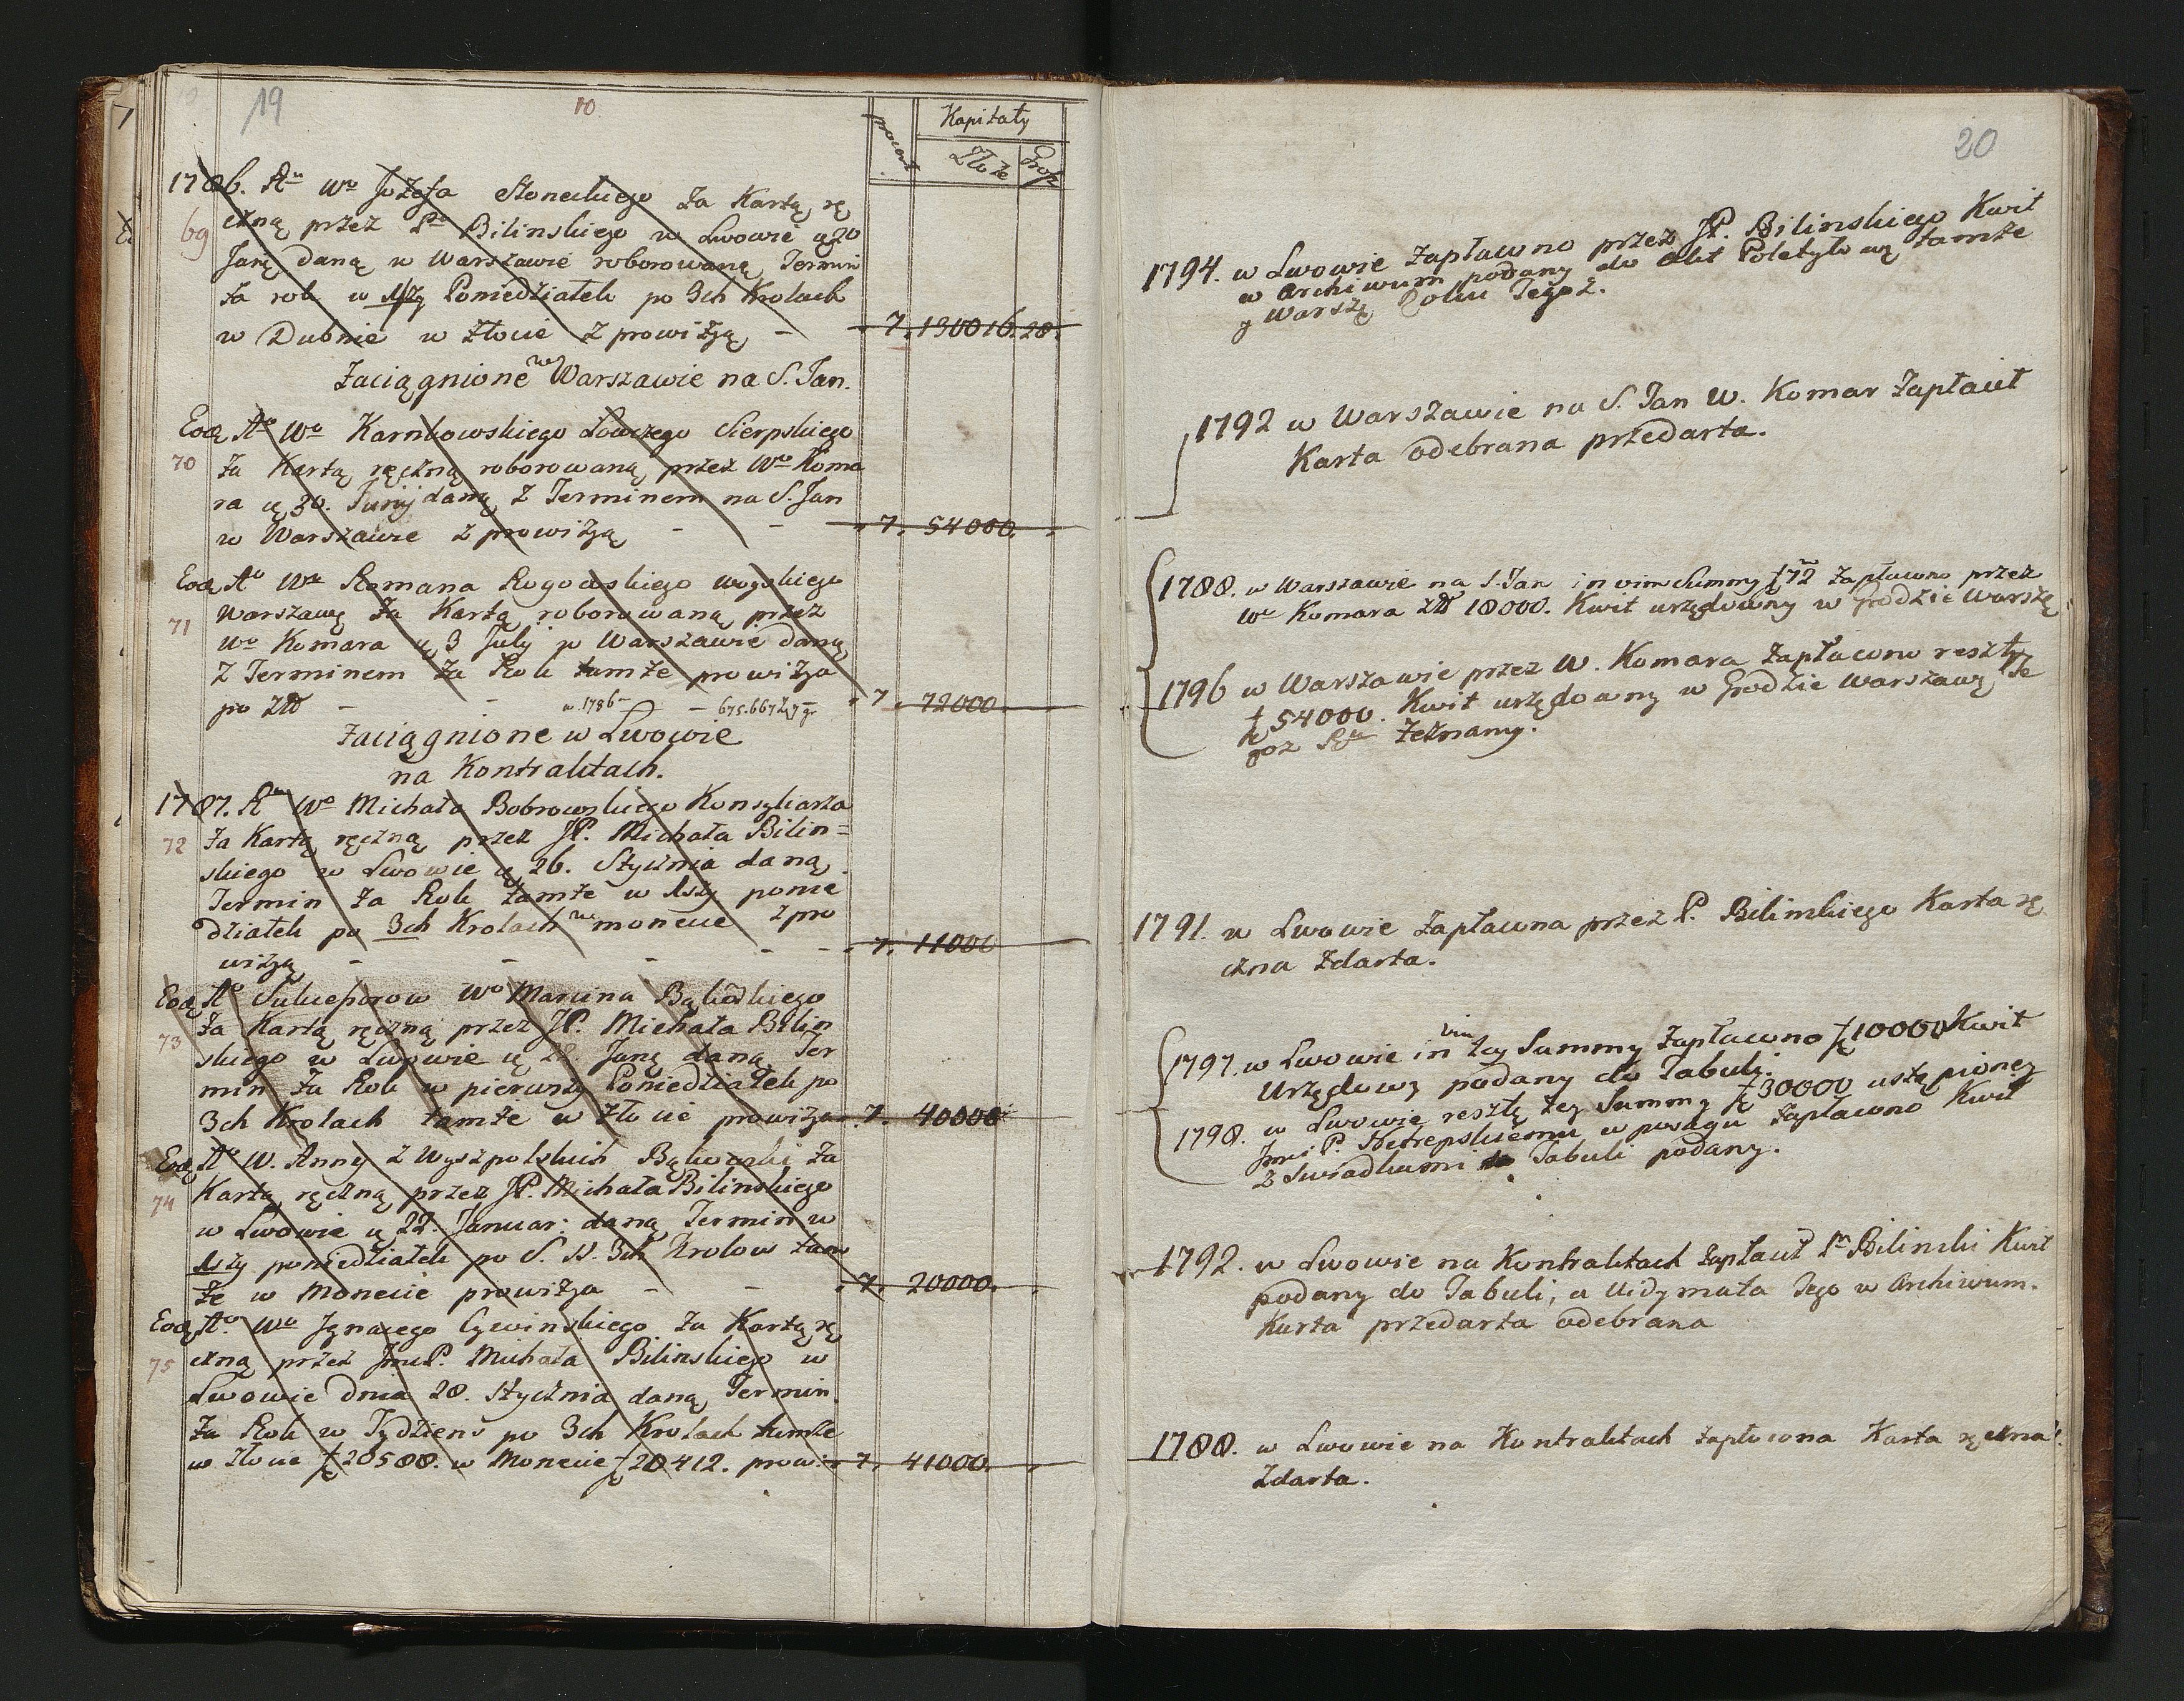 19
10
procent
Kapitały
Złote
Grosz
1786. Ao Wo Jozefa Słoneckiego Za Kartą rę
69
czną przez Po Bilinskiego w Lwowie d 20
Janȩ daną w Warszawie roborowaną Termin
za rok w 1szy Poniedziałek po 3ch Krolach
w Dubnie w złocie z prowizyą – 7. 130016. 28.
Zaciągnione we Warszawie na S. Jan.
Eodȩ Ao Wo Karnkowskiego Łowczego Sierpskiego
70
Za Kartą ręczną roborowaną przez Wo Koma
ra d 30. Junij daną z Terminem na S. Jan
w Warszawie z prowizyą - - 7. 54000.
Eodȩ Ao Wo Romana Rogowskiego woyskiego
Warszawȩ Za Kartą roborowaną przez
71
Wo Komara d 3 July w Warszawie daną
z Terminem Za Rok tamże prowizya
po - - w 1786 - - 675.667 Zł 7 gr 7. 72000.
Zaciągnione w Lwowie
na Kontraktach.
1787. Ao Wo Michała Bobrowskiego Konsyliarza
72
Za Kartą ręczną przez JP. Michała Bilin=
skiego w Lwowie d 26. Stycznia daną
Termin Za Rok tamże w 1szy ponie
działek po 3ch Krolach w monecie z pro
wizyą - - - - - 7. 11000
Eodȩ Ao Sukcessorow Wo Marcina Bąkowskiego
Za Kartą ręczną przez JP. Michała Bilin
73
skiego w Lwowie d 22. Janȩ daną Ter
min Za Rok w pierwszy Poniedziałek po
3ch Krolach tamże w złocie prowizya 7. 40000
Eodȩ Ao W. Anny z Wyszpolskich Bąkowski Za
Kartą ręczną przez JP. Michała Bilinskiego
74
w Lwowie d 22. Januar: daną Termin w
1szy poniedziałek po S. SS. 3ch Krolow tam
że w Monecie prowizya - - 7. 20000.
Eodȩ Ao Wo Jgnacego Cywinskiego Za Kartą rę
75
czną przez JmcP. Michała Bilinskiego w
Lwowie dnia 28. Stycznia daną Termin
Za Rok w Tydzień po 3ch Krolach tamże
w złocie 20588. w Monecie 20412. prowi: 7. 41000.
20
1794. w Lwowie Zapłacono przez JP. Bilinskiego Kwit
w Archiwum podany do Akt Poletyłowȩ tamże
y Warszȩ Roku Tegoż.
1792 w Warszawie na S. Jan W. Komar Zapłacił
Karta odebrana przedarta.
1788. w Warszawie na S. Jan in vim Summy 72 zapłacono przez
Wo Komara 18000. Kwit urzędowny w Grodzie Warszȩ
1796 w Warszawie przez W. Komara Zapłacono resztę
54000. Kwit urzędowny w Grodzie Warszawȩ Te
goż Zeznany.
1791. w Lwowie Zapłacona przez P. Bilinskiego Karta rę
czna Zdarta.
1797. w Lwowie in vim tey Summy Zapłacono 10000 Kwit
Urzędowy podany do Tabuli.
1798. w Lwowie resztę tey Summy 30000 ustąpioney
Jmci P. w posagu zapłacono Kwit
z Swiadkami do Tabuli podany.
1792. w Lwowie na Kontraktach zapłacił Pn Bilinski Kwit
podany do Tabuli, a Widymata Jego w Archiwum.
Karta przedarta odebrana
1788. w Lwowie na Kontraktach zapłacona Karta ręczna
Zdarta.